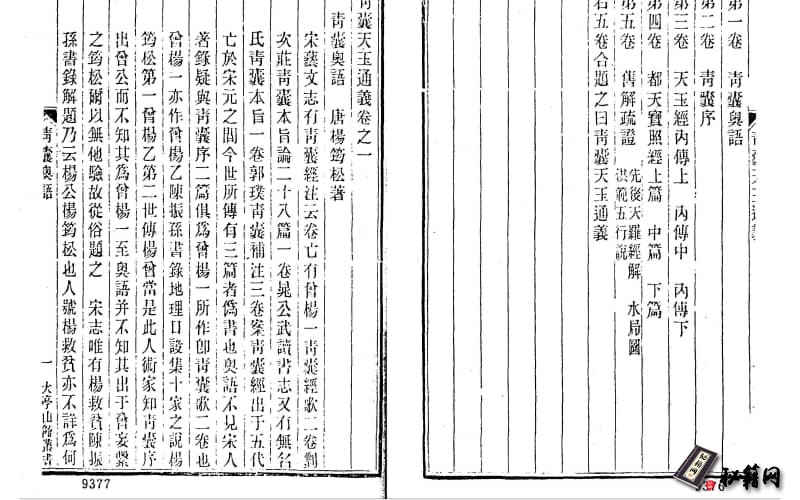 第一卷 青囊奧語
第二卷 青囊序
第三卷 天玉經內傳上 內傳中 內傳下
第四卷 都天寶照經上篇 中篇 下篇
第五卷 舊解疏證 先後天羅經解 水局圖
洪範五行說
右五卷合題之曰青囊天玉通義
青囊天玉通義卷之一
青囊奧語 唐楊筠松著
宋藝文志有青囊經注云卷亡有曾楊一青囊經歌二卷劉
次莊青囊本旨論二十八篇一卷晁公武讀書志又有無名
氏青囊本旨一卷郭璞青囊補注三卷案青囊經出于五代
亡於宋元之間今世所傳有三篇者僞書也奧語不見宋人
著錄疑與青囊序二篇俱爲曾楊一所作卽青囊歌二卷也
曾楊一亦作曾楊乙陳振孫書錄地理口訣集十家之說楊
筠松第一曾楊乙第二世傳楊曾當是此人術家知青囊序
出曾公而不知其爲曾楊一至奧語并不知其出于曾妄繫
之筠松爾以無他驗故從俗題之 宋志唯有楊救貧陳振
孫書錄解題乃云楊公楊筠松也人號楊救貧亦不詳爲何
青囊奧語
一
大亭山館叢書
9377
秘籍网